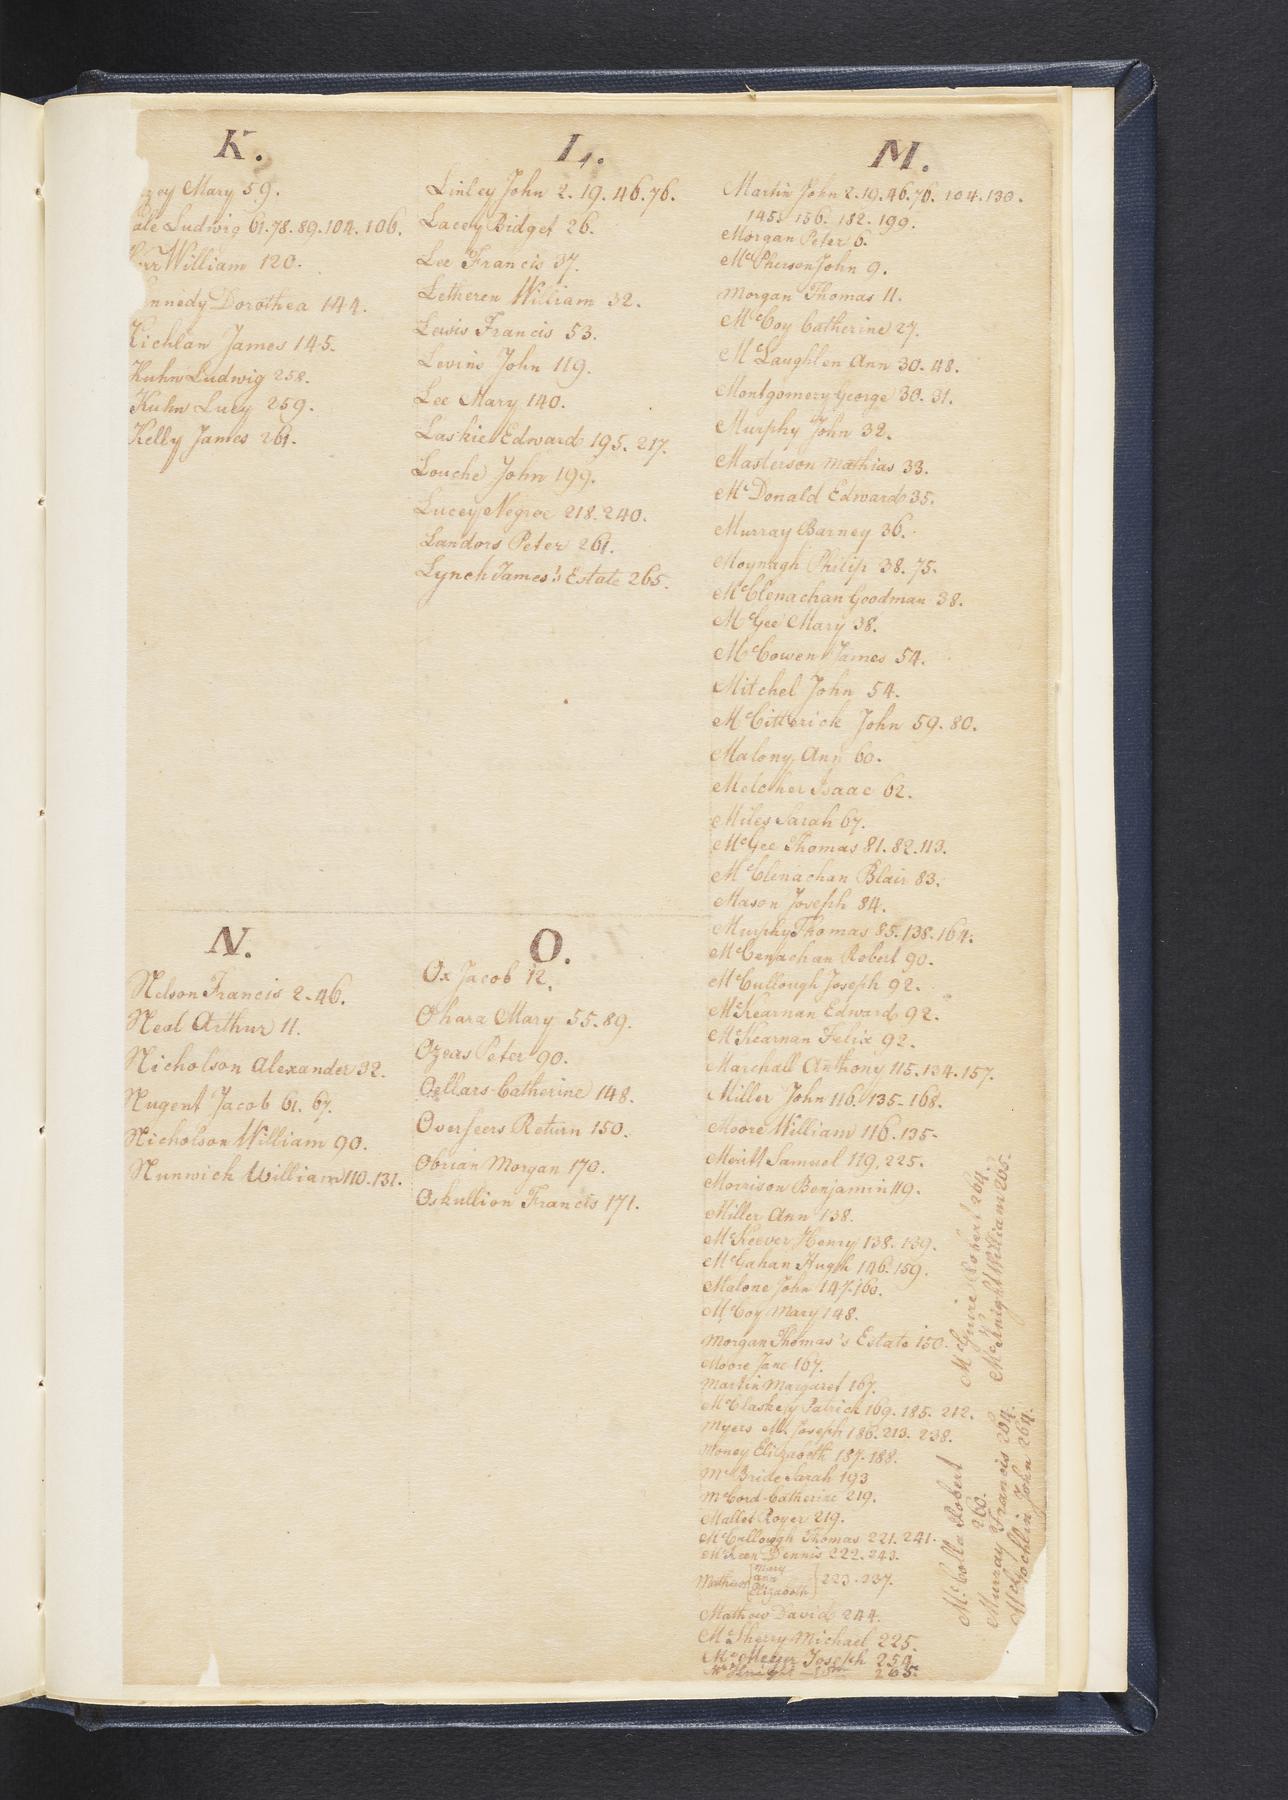 K.
Mary 59.
Ludwig 61.78.89.104.106.
William 120.
nnedy Dorothea 144.
Kichlan James 145.
Kuhn Ludwig 258.
Kuhn Lucy 259.
Kelly James 261.
L.
Linley John 2.19.46.76.
Lacey Bidget 26.
Lee Francis 37.
Letheren William 32.
Lewis Francis 53.
Levins John 119.
Lee Mary 140.
Laskie Edward 195.217.
Louche John 199.
Lucey Negroe 218.240.
Landors Peter 261.
Lynch James's Estate 265.
M.
Martin John 2.19.46.76.104.130.
145. 156. 182. 199.
Morgan Peter 6.
McPherson John 9.
Morgan Thomas 11.
McCoy Catherine 27.
McLaughlen Ann 30.48.
Montgomery George 30.31.
Murphy John 32.
Masterson Mathias 33.
McDonald Edward 35.
Murray Barney 36.
Moynagh Philip 38.75.
McClenachan Goodman 38.
McGee Mary 38.
McCowen James 54.
Mitchel John 54.
McCitterick John 59.80.
Malony Ann 60.
Melcher Isaac 62.
Miles Sarah 67.
McGee Thomas 81.82.113.
McClenachan Blair 83.
Mason Joseph 84.
Murphy Thomas 85.138.164.
McCenachan Robert 90.
McCullough Joseph 92.
McKearnan Edward 92.
McKearnan Felix 92.
Marchall Anthony 115.134.157.
Miller John 116.135-168.
Moore William 116.135-
Meritt Samuel 119.225.
Morrison Benjamin 119.
Miller Ann 138.
McKeever Henry 138.139.
McGahan Hugh 146.159.
Malone John 147.160.
McCoy Mary 148.
Morgan Thomas's Estate 150.
Moore Jane 167.
Martin Margaret 167.
McClaskey Patrick 169.185.212.
Myers Joseph 186.213.238.
Money Elizabeth 187.188.
McBride Sarah 193
McCord Catherine 219.
Mallet Royer 219.
McCullough Thomas 221.241.
McKeen Dennis 222.243.
Mary
Mathew Ann 223.237.
Elizabeth
Mathew David 244.
McSherry Michael 225.
Joseph 254.
McKnight 265.
McColla Robert
260.
Murray Francis 264.
McLochlin John 264.
McGuire Robert 264.
McKnight William 265.
N.
Nelson Francis 2-46.
Neal Arthur 11.
Nicholson Alexander 32.
Nugent Jacob 61.67.
Nicholson William 90.
Nunwich William 110.131.
O.
Ox Jacob 12.
Ohara Mary 55.89.
Ozeas Peter 90.
Oellars Catherine 148.
Overseers Return 150.
Obrian Morgan 170.
Oskullion Francis 171.